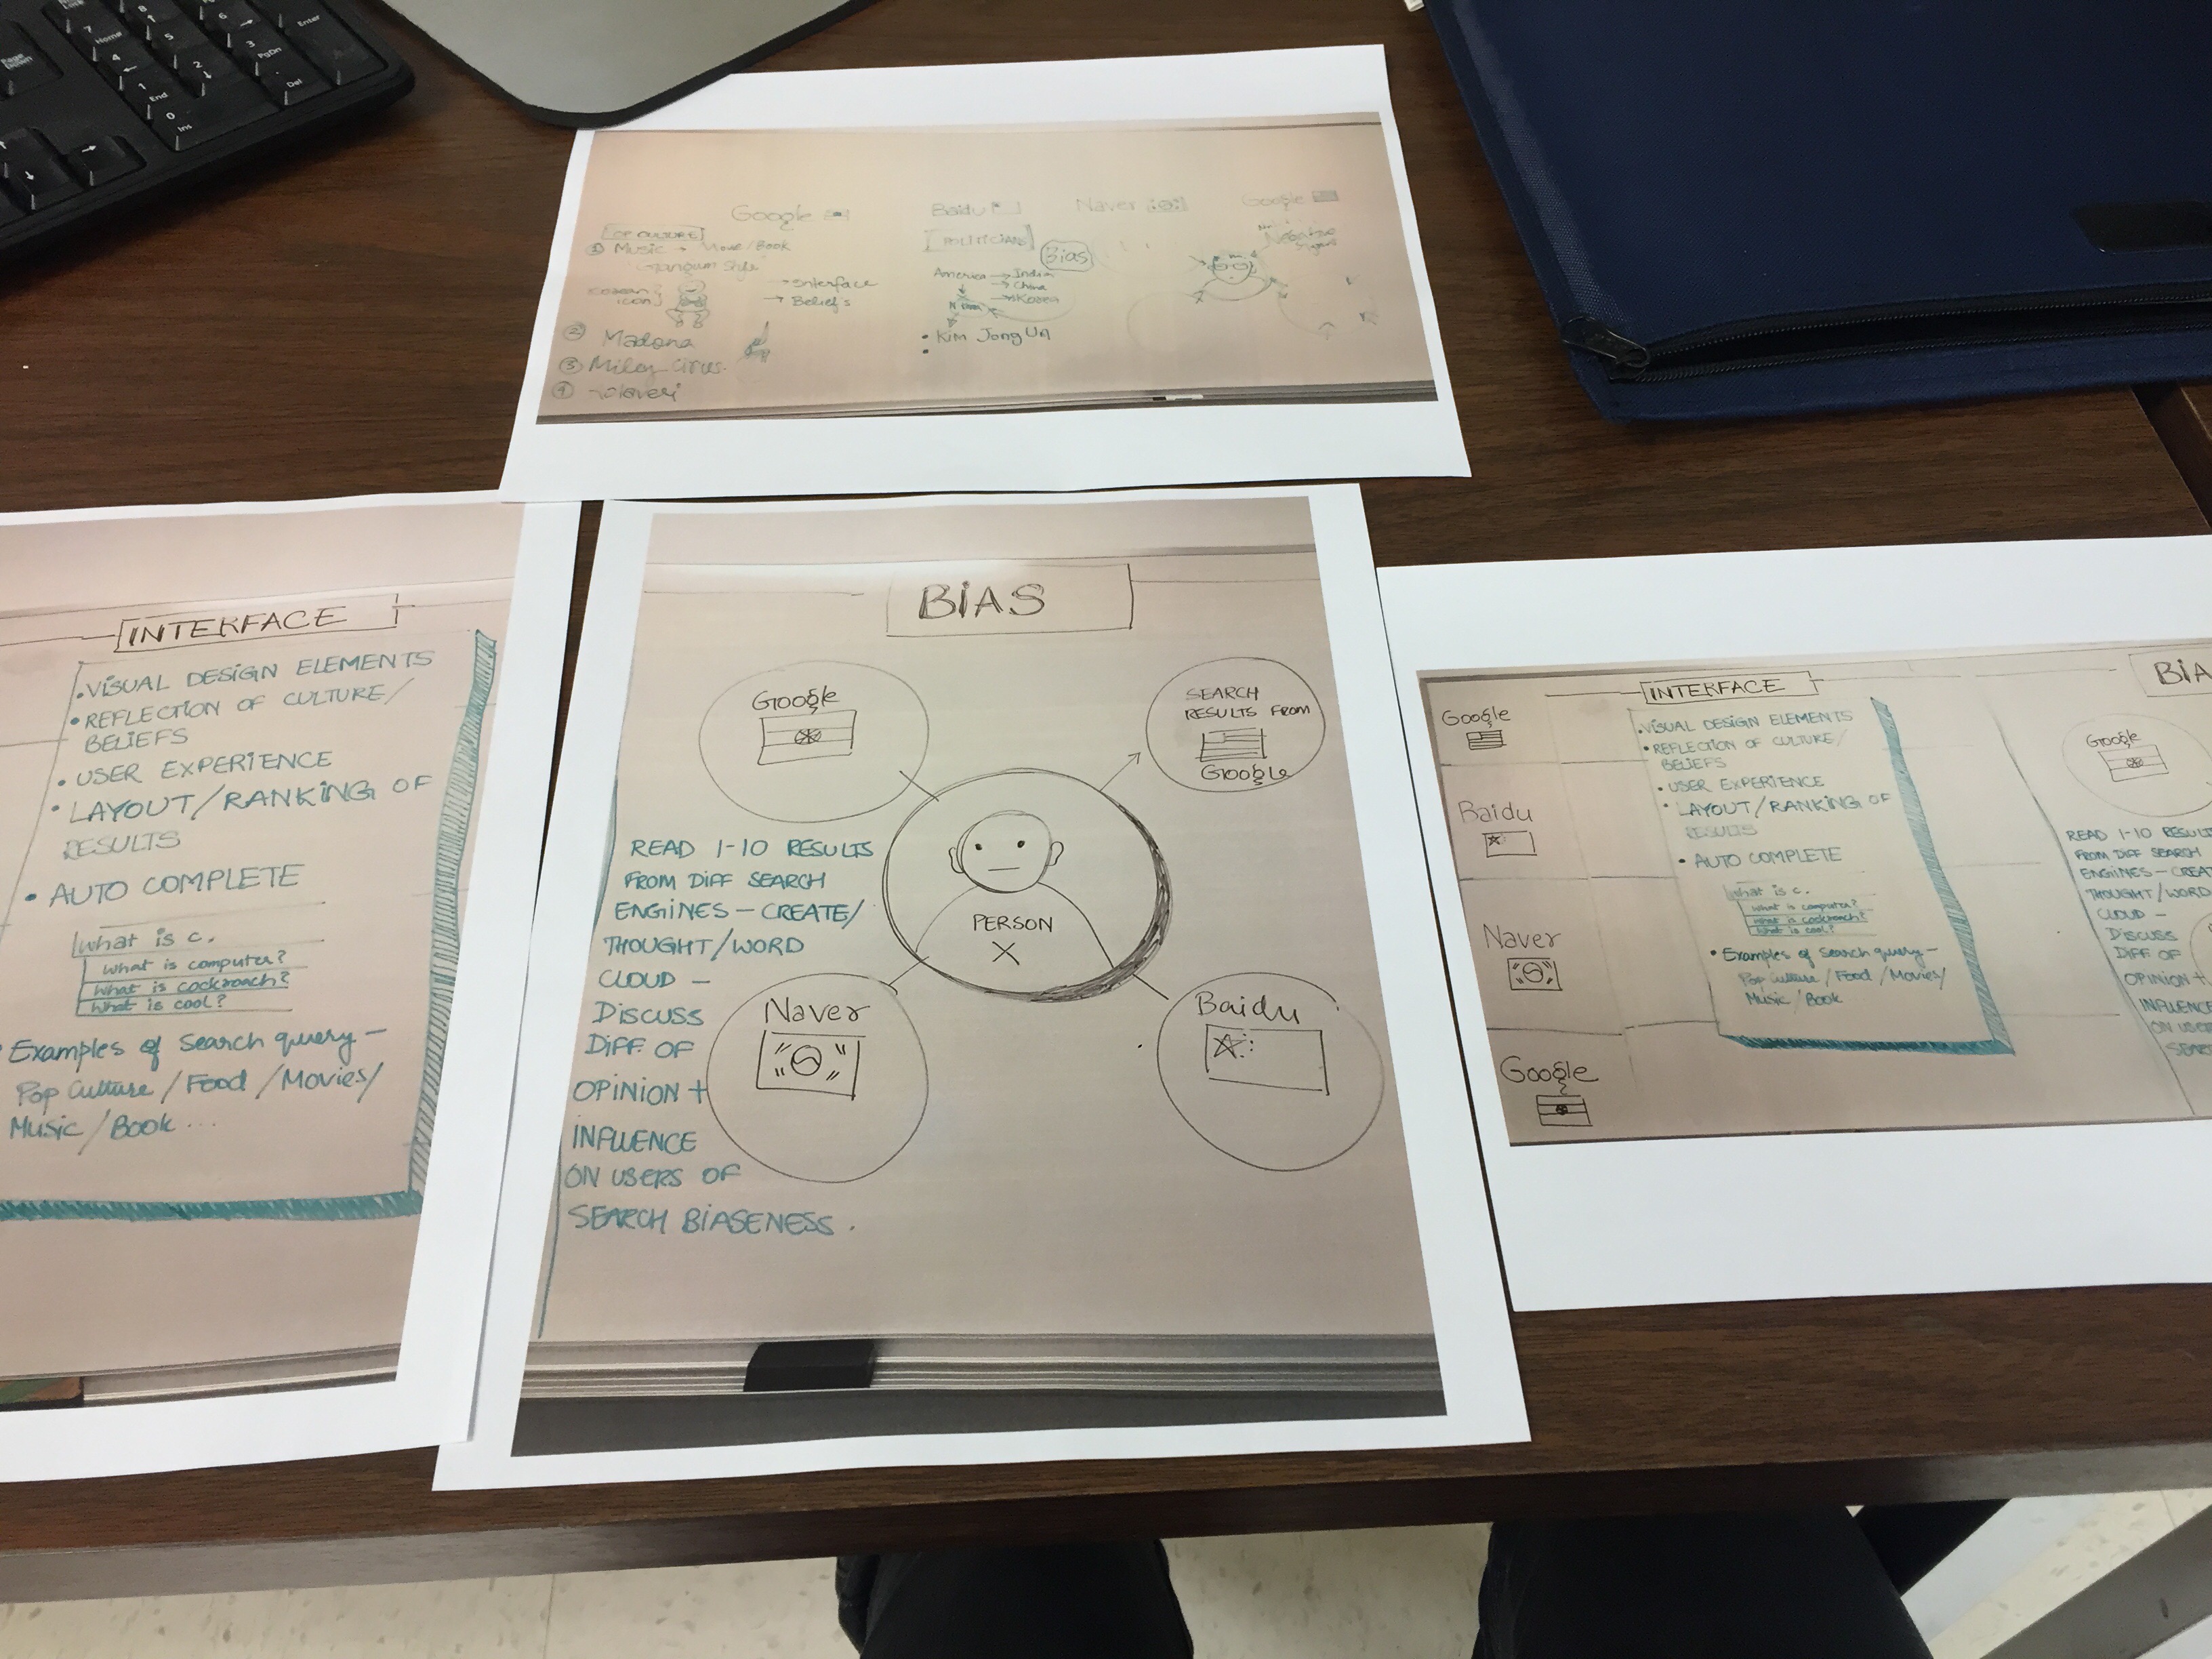 7
Home
4
1
End
0
Ins
8
5
2
9
6
3
PgDn
Del
Enter
Google
Baidu
Naver
Google
Music → Movie/Book
"Gangum Style"
Korean
icon
→ Interface
→ Beliefs
② Madona
③ Miley Cirus.
④
[POLITICIANS]
Bias
America → India
→ China
→ Korea
• Kim Jong Un
•
Negative
INTERFACE
• VISUAL DESIGN ELEMENTS
• REFLECTION OF CULTURE/
BELIEFS
• USER EXPERIENCE
• LAYOUT/RANKING OF
RESULTS
• AUTO COMPLETE
what is c.
what is computer?
what is cockroach?
what is cool?
• Examples of search query –
Pop Culture / Food / Movies/
Music / Book ...
BIAS
Google
SEARCH
RESULTS FROM
Google
PERSON
X
Naver
Baidu
READ 1-10 RESULTS
FROM DIFF SEARCH
ENGINES – CREATE/
THOUGHT/WORD
CLOUD –
DISCUSS
DIFF. OF
OPINION +
INFLUENCE
ON USERS OF
SEARCH BIASENESS.
Google
Baidu
Naver
Google
INTERFACE
• VISUAL DESIGN ELEMENTS
• REFLECTION OF CULTURE/
BELIEFS
• USER EXPERIENCE
• LAYOUT/RANKING OF
RESULTS
• AUTO COMPLETE
what is c.
what is computer?
what is cockroach?
what is cool?
• Examples of search query –
Pop Culture / Food / Movies/
Music / Book
BIA
Google
READ 1-10 RESULTS
FROM DIFF SEARCH
ENGINES – CREAT
THOUGHT/WORD
CLOUD –
DISCUSS
DIFF OF
OPINION +
INFLUENCE
ON USER
SEAR